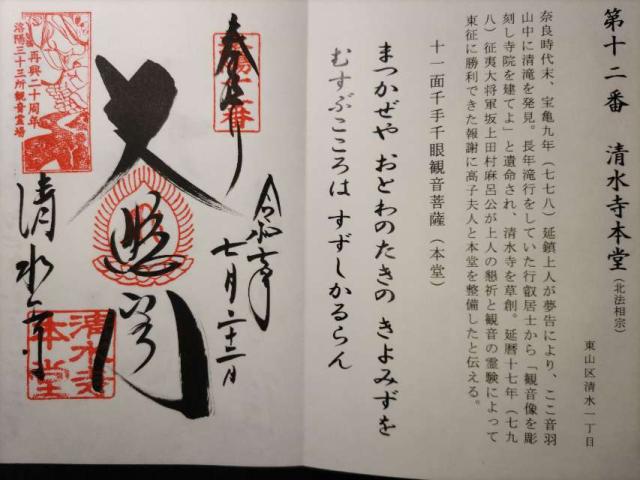 第十二番　清水寺本堂（北法相宗）
東山区清水一丁目
奈良時代末、宝亀九年（七七八）延鎮上人が夢告により、ここ音羽
山中に清滝を発見。長年滝行をしていた行叡居士から「観音像を彫
刻し寺院を建てよ」と遺命され、清水寺を草創。延暦十七年（七九
八）征夷大将軍坂上田村麻呂公が上人の懇祈と観音の霊験によって
東征に勝利できた報謝に高子夫人と本堂を整備したと伝える。
十一面千手千眼観音菩薩（本堂）
まつかぜや おとわのたきの きよみずを
むすぶこころは すずしかるらん
奉拝
令和七年
七月二十二日
大悲閣
清水寺
再興二十周年
洛陽三十三所観音霊場
清水寺
本堂